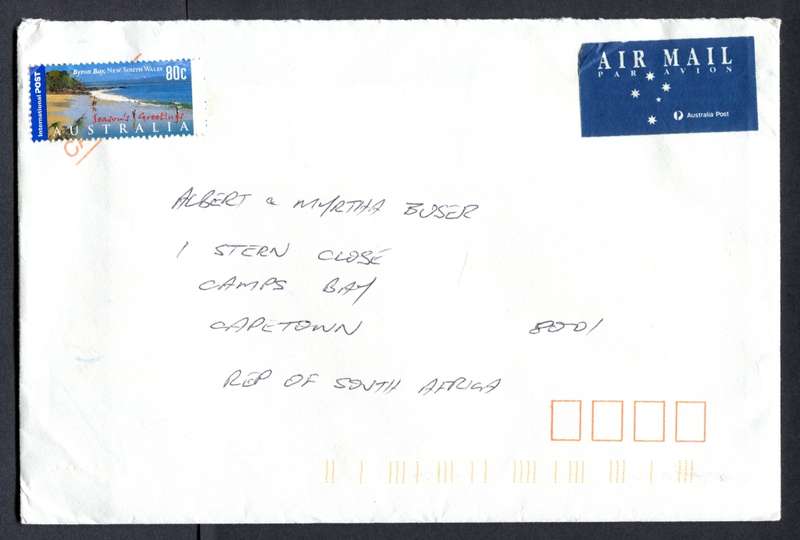 Byron Bay, NEW SOUTH WALES 80c
International POST
Season's Greetings
AUSTRALIA
AIR MAIL
PAR AVION
Australia Post
ALBERT & MYRTHA BUSER
1 STERN CLOSE
CAMPS BAY
CAPETOWN 8001
REP OF SOUTH AFRICA